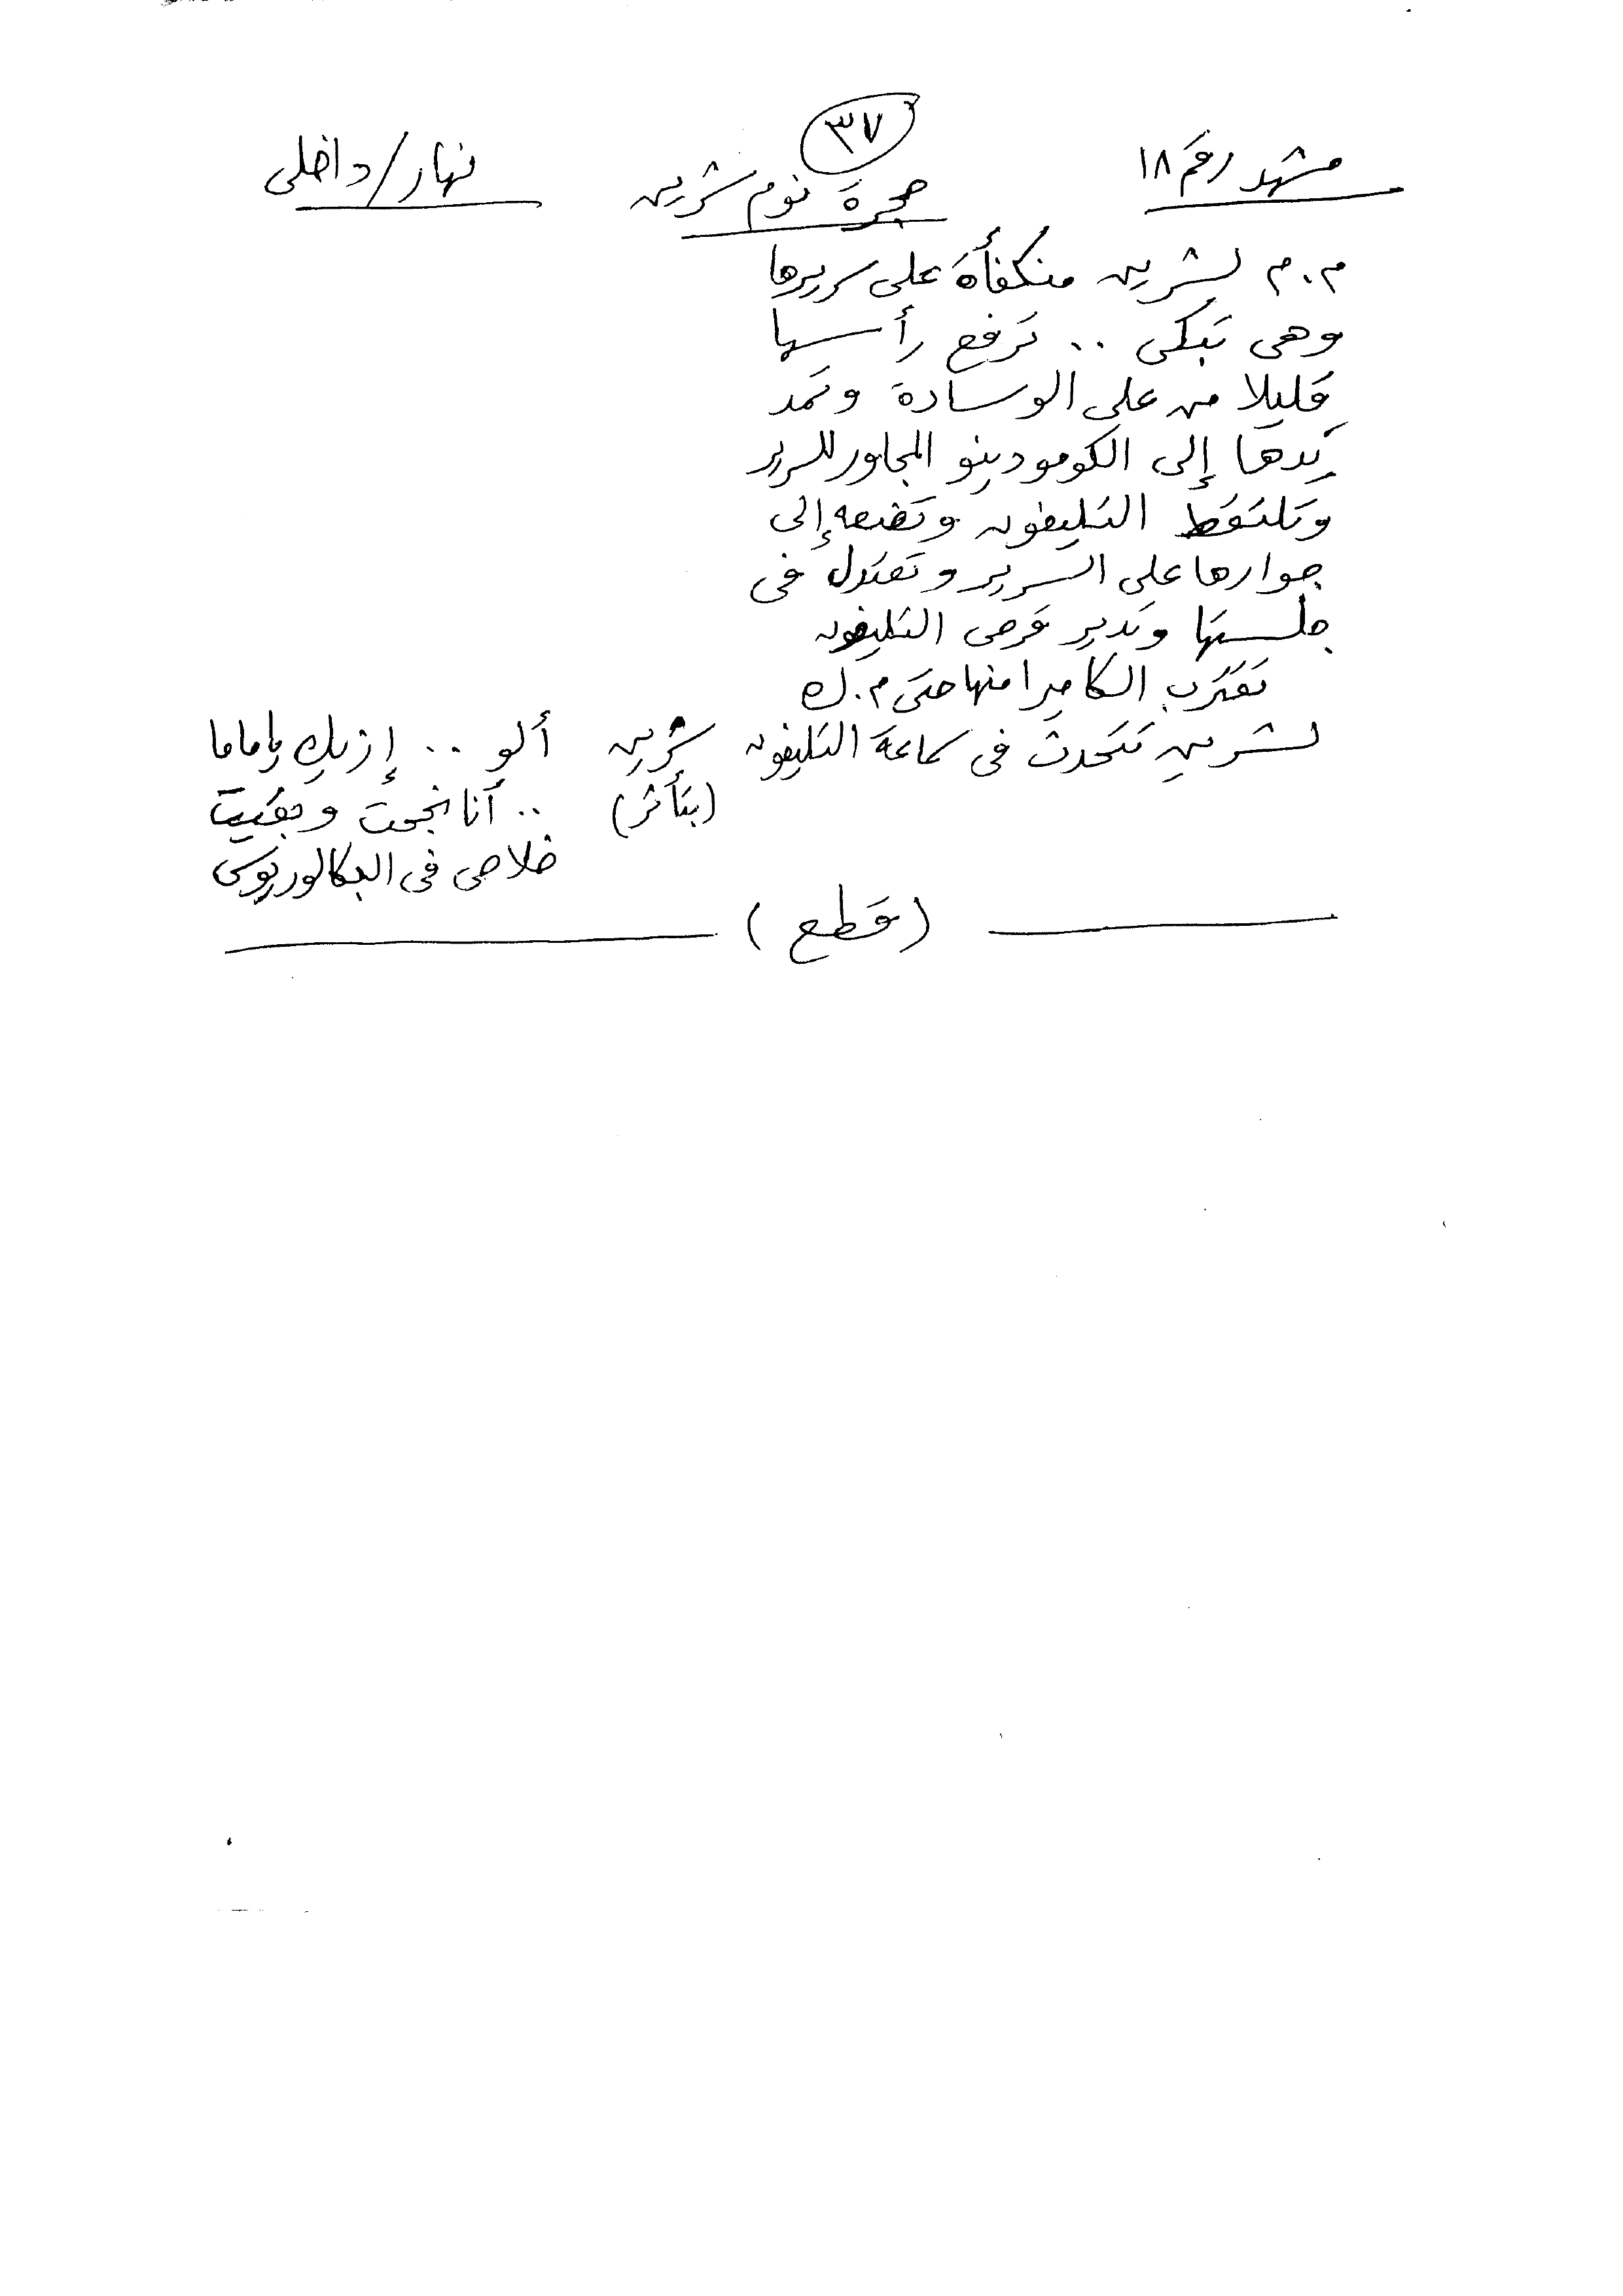 ٣٧
مشهد رقم ١٨ حجرة نوم شرين نهار/داخلى
م.م لشرين منكفأة على سريرها
وهى تبكى .. ترفع رأسها
قليلا من على الوسادة وتمد
يدها إلى الكومودينو المجاور للسرير
وتلتقط التليفون وتضعه إلى
جوارها على السرير وتعتدل فى
جلستها وتدير قرص التليفون
تقترب الكاميرا منها حتى م.ك
لشرين تتحدث فى سماعة التليفون شرين ألو .. إزيك ياماما
(بتأثر) .. أنا نجحت وبقيت
خلاص فى البكالوريوس
(قطع)